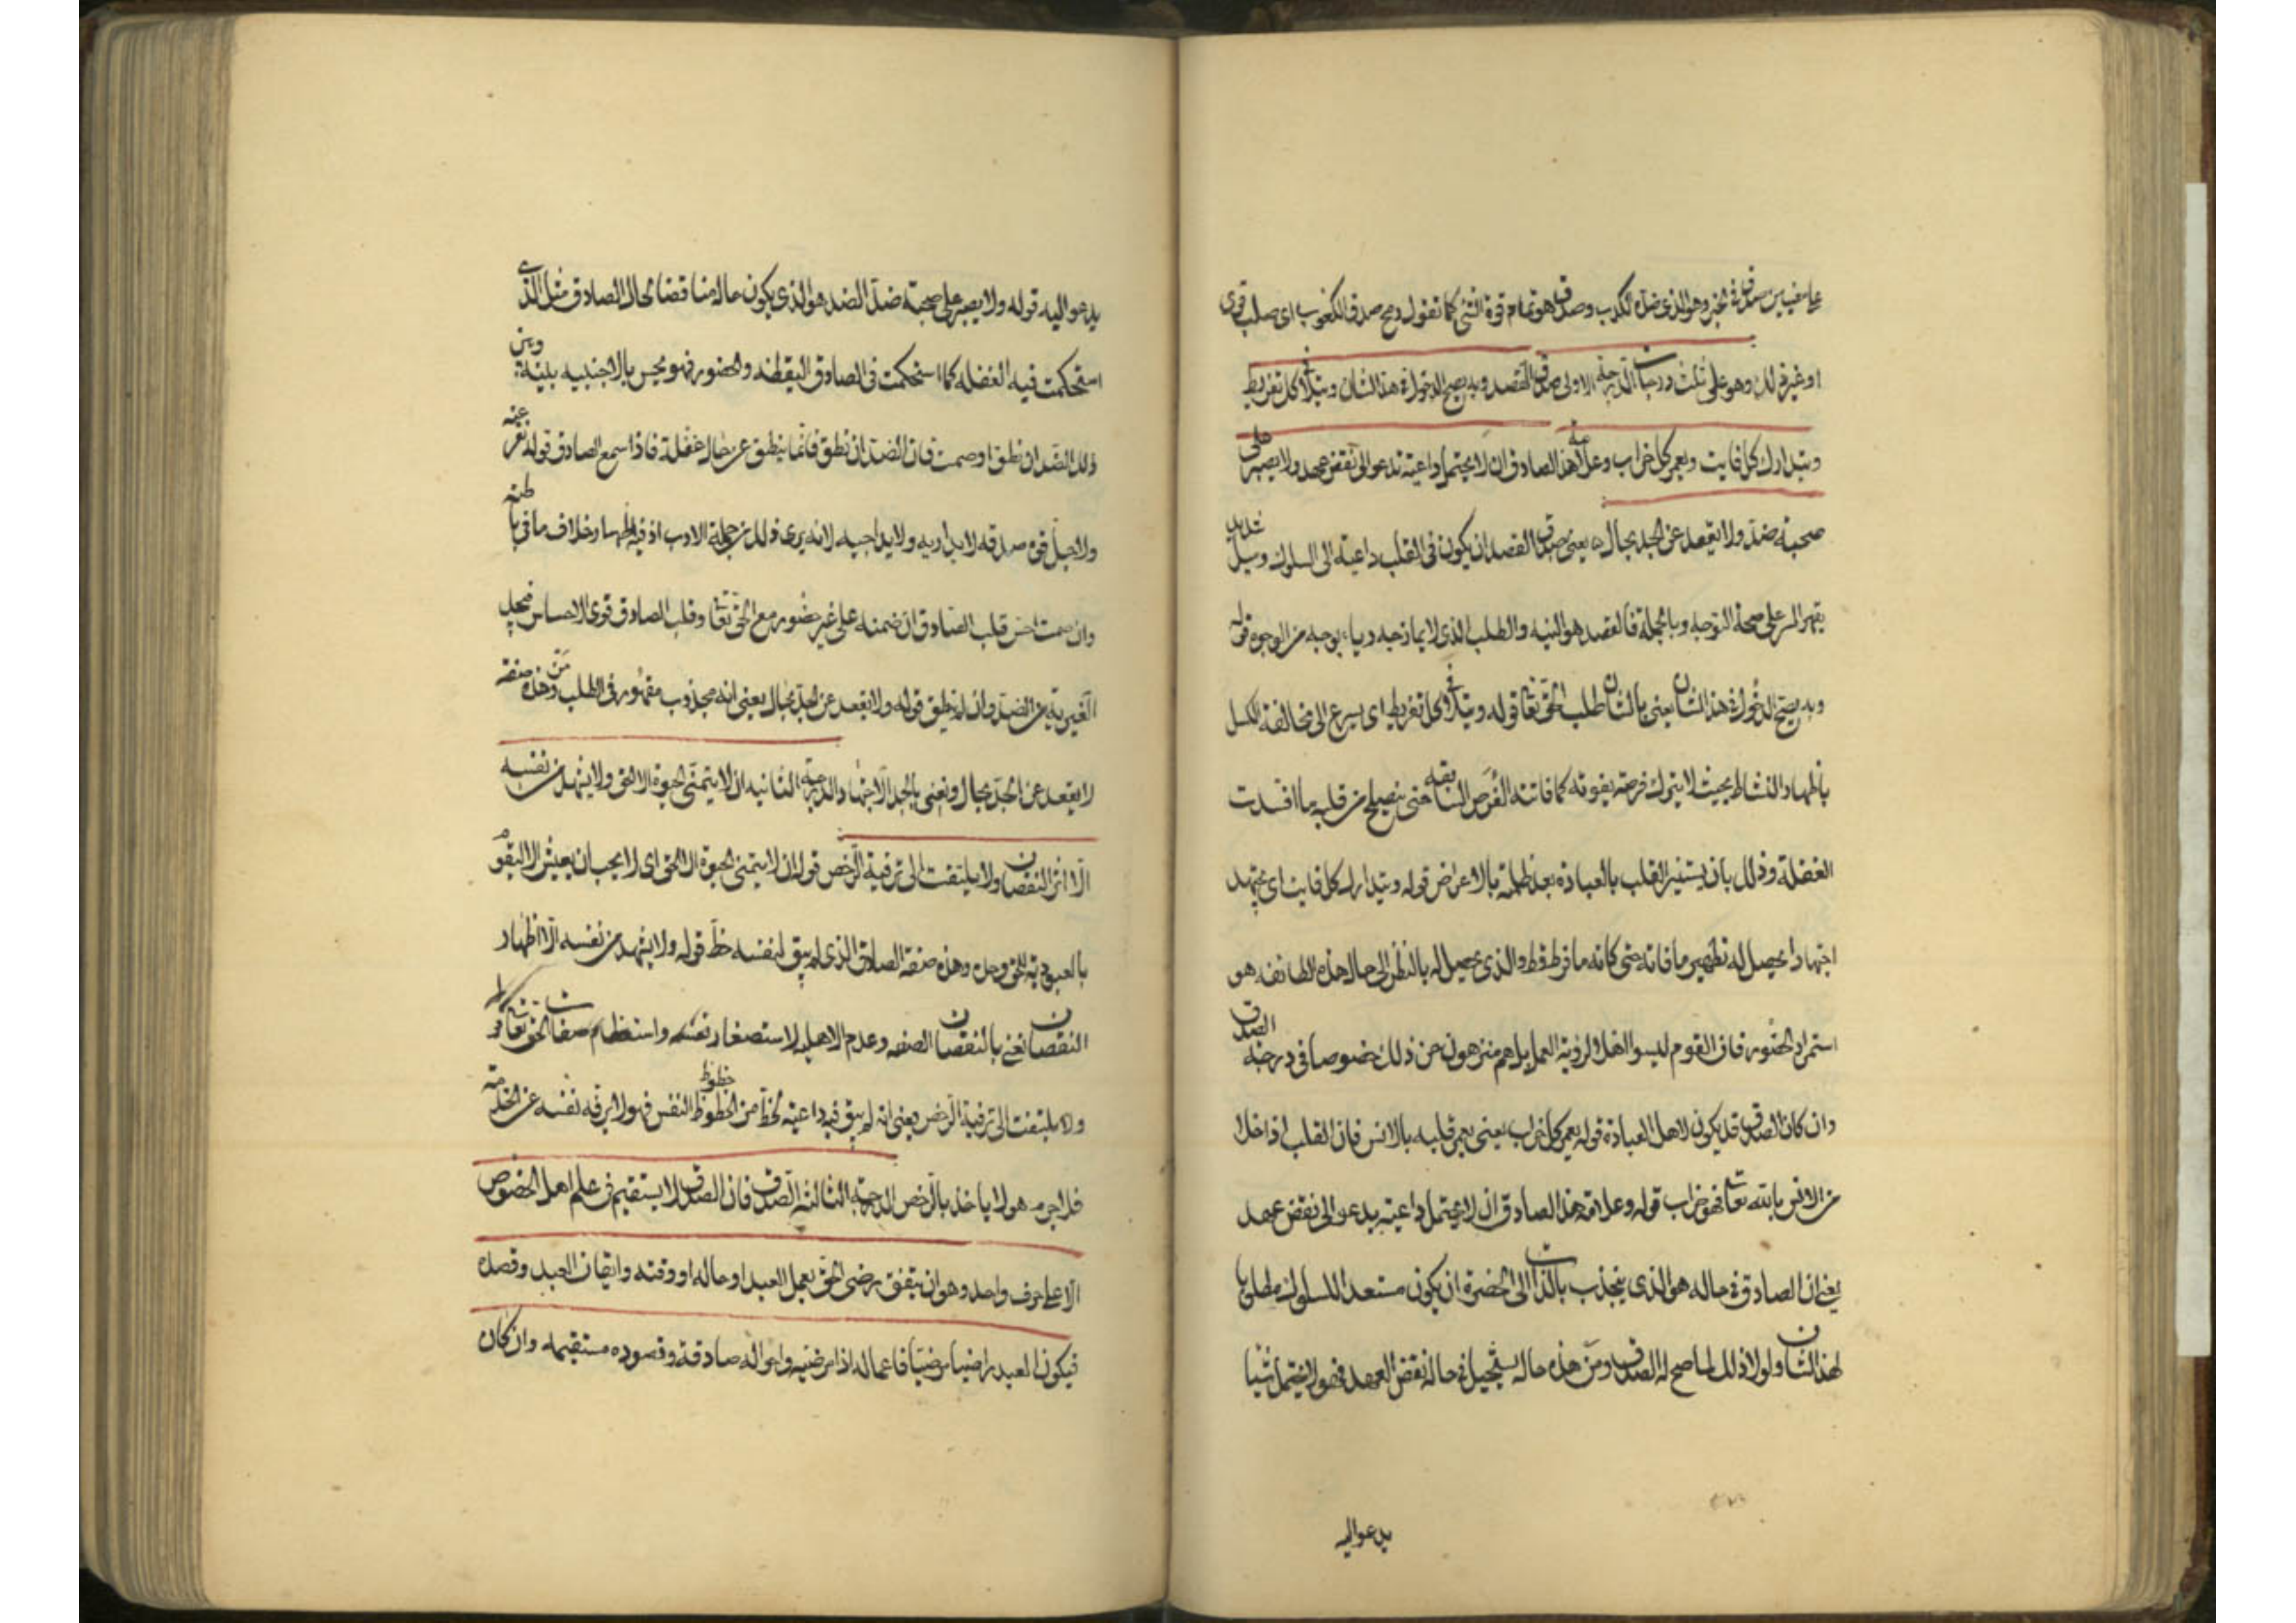 وهو الذي ضده الكذب وصدق هو تمام قوة الشئ كما تقول رمح صدق الكعوب اى صلب قوى
او غير ذلك وهو على ثلث درجات الدرجة الاولى صدق القصد وبه يصح الدخول فى هذا الشان ويتلافى كل تفريط
ويتدارك كل فايت ويعمر كل خراب وعلامة هذا الصادق ان لا يحتمل داعية تدعو الى نقض عهد ولا يصبر على
صحبة ضد ولا يقعد عن الجد بحال يعنى صدق القصد ان يكون فى القلب داعية الى السلوك وميل شديد
يقهر السر على صحة التوجه وبالجملة فالقصد هو النية والطلب الذى لا يمازجه ريا بوجه من الوجوه قوله
وبه يصح الدخول فى هذا الشان يعنى بالشان طلب الحق تعا قوله ويتلافى كل تفريط اى يسرع الى مخالفة الكسل
باظهار النشاط بحيث لا يترك فرصة يفوته كما فاتته الفرص السابقه حتى يصلح من قلبه ما افسدت
الغفلة وذلك بان يستنير القلب بالعبادة بعد ظلمته بالاعراض قوله ويتدارك كل فايت اى يجتهد
اجتهادا يحصل له تطهير ما فاته حتى كانه ما فرط قط والذى يحصل له بالنظر الى حال هذه الطائفه هو
استمرار الحضور فان القوم ليسوا اهلا لرؤية العمل بل هم منزهون عن ذلك خصوصا فى درجة الصدق
وان كان الصدق قد يكون لاهل العبادة قوله يعمر كل خراب يعنى يعمر قلبه بالانس فان القلب اذا خلا
من الانس بالله تعا فهو خراب قوله وعلامة هذا الصادق ان لا يحتمل داعية يدعو الى نقض عهد
يعنى ان الصادق فى حاله هو الذى ينجذب بالذات الى الحضرة ان يكون مستعدا للسلوك مطلوبا
لهذا الشان ولولا ذلك لما صح له الصدق ومن هذه حاله يستحيل فى حاله نقض العهد فهو لا يحتمل شيا
يدعو اليه
يدعو اليه قوله ولا يصبر على صحبة ضد الضد هو الذى يكون حاله مناقضا لحال الصادق مثل الذى
استحكمت فيه الغفله كما استحكمت فى الصادق اليقظه والحضور فهو يحس بالاجنبيه بينه وبين
ذلك الضد ان نطق او صمت فان الضد ان نطق فانما ينطق عن حال غفلة فاذا سمع الصادق قوله نفر عنه
ولاجل قوة صدقه لا يداريه ولا يداجيه لانه يرى ذلك من جملة الادب اذ فيه اظهار خلاف ما فى باطنه
وان صمت احس قلب الصادق ان ضمنه على غير حضور مع الحق تعا وقلب الصادق قوى الاحساس فيجد
الغيرية من الضد وان لم ينطق قوله ولا يقعد عن الجد بحال يعنى انه مجذوب مقهور فى الطلب ومن هذه صفته
لا يقعد عن الجد بحال ونعنى بالجد الاجتهاد والدرجة الثانيه ان لا يتمنى الحيوة الا للحق ولا يشهد من نفسه
الا اثر النقصان ولا يلتفت الى ترفية الرخص قوله ان لا يتمنى الحيوة الا للحق اى لا يحب ان يعيش الا ليقوم
بالعبودية للحق وحده وهذه صفة الصادق الذى لم يبق لنفسه حظ قوله ولا يشهد من نفسه الا اظهار
النقصان نعنى بالنقصان الصفه وعدم الاهليه لاستصغار نفسه واستعظام صفات الحق تعا قوله
ولا يلتفت الى ترفية الرخص يعنى انه لم يبق فيه داعية لحظ من الحظوظ حظوظ النفس فهو لا يرفه نفسه عن الخدمة
فلا جرم هو لا ياخذ بالرخص الدرجة الثالثة الصدق فان الصدق لا يستقيم فى علم اهل الخصوص
الا على حرف واحد وهو ان يتفق رضى الحق بعمل العبد او حاله او وقته وايقان العبد وقصده
فيكون العبد راضيا مرضيا فاعماله اذا مرضيه واحواله صادقة وقصوده مستقيمه وان كان